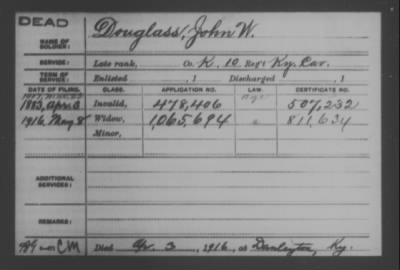 DEAD
NAME OF SOLDIER: Douglass, John W.
SERVICE: Late rank, Co. K, 10 Reg't Ky. Cav.
TERM OF SERVICE: Enlisted , 1 Discharged , 1
DATE OF FILING. CLASS. APPLICATION NO. LAW. CERTIFICATE NO.
1883, Apr. 3 Invalid, 478,406 507,232
1916, May 8 Widow, 1,065,694 811,634
Minor,
ADDITIONAL SERVICES:
REMARKS:
CM Died Apr. 3, 1916, at Ky.